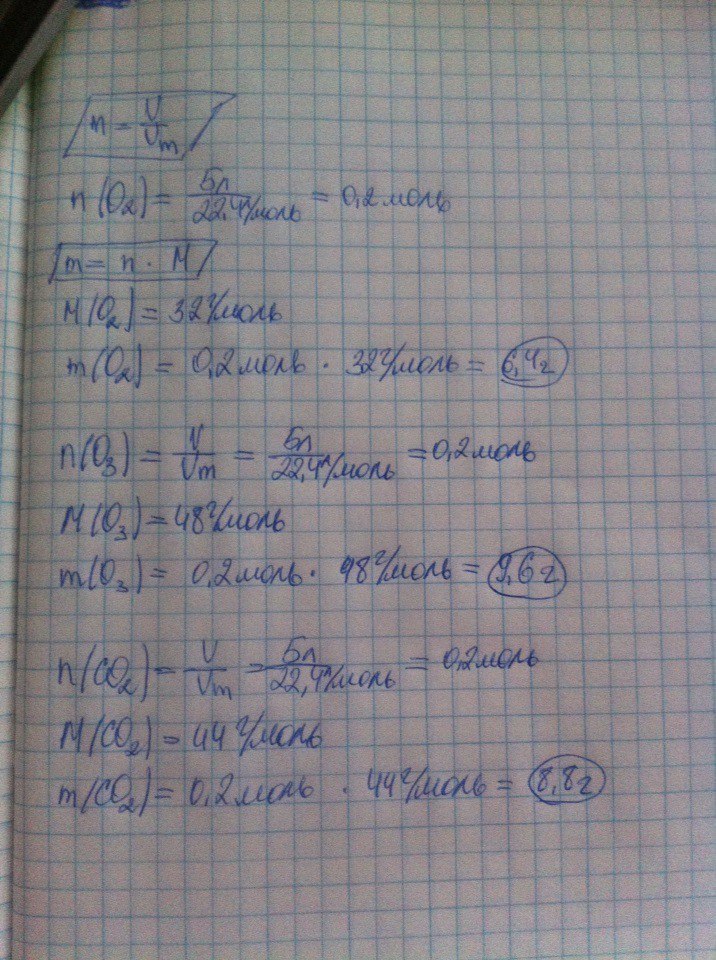 n = V/Vm
n(O₂) = 5л/22,4л/моль = 0,2 моль
m = n · M
M(O₂) = 32 г/моль
m(O₂) = 0,2 моль · 32 г/моль = 6,4 г
n(O₃) = V/Vm = 5л/22,4л/моль = 0,2 моль
M(O₃) = 48 г/моль
m(O₃) = 0,2 моль · 48 г/моль = 9,6 г
n(CO₂) = V/Vm = 5л/22,4л/моль = 0,2 моль
M(CO₂) = 44 г/моль
m(CO₂) = 0,2 моль · 44 г/моль = 8,8 г